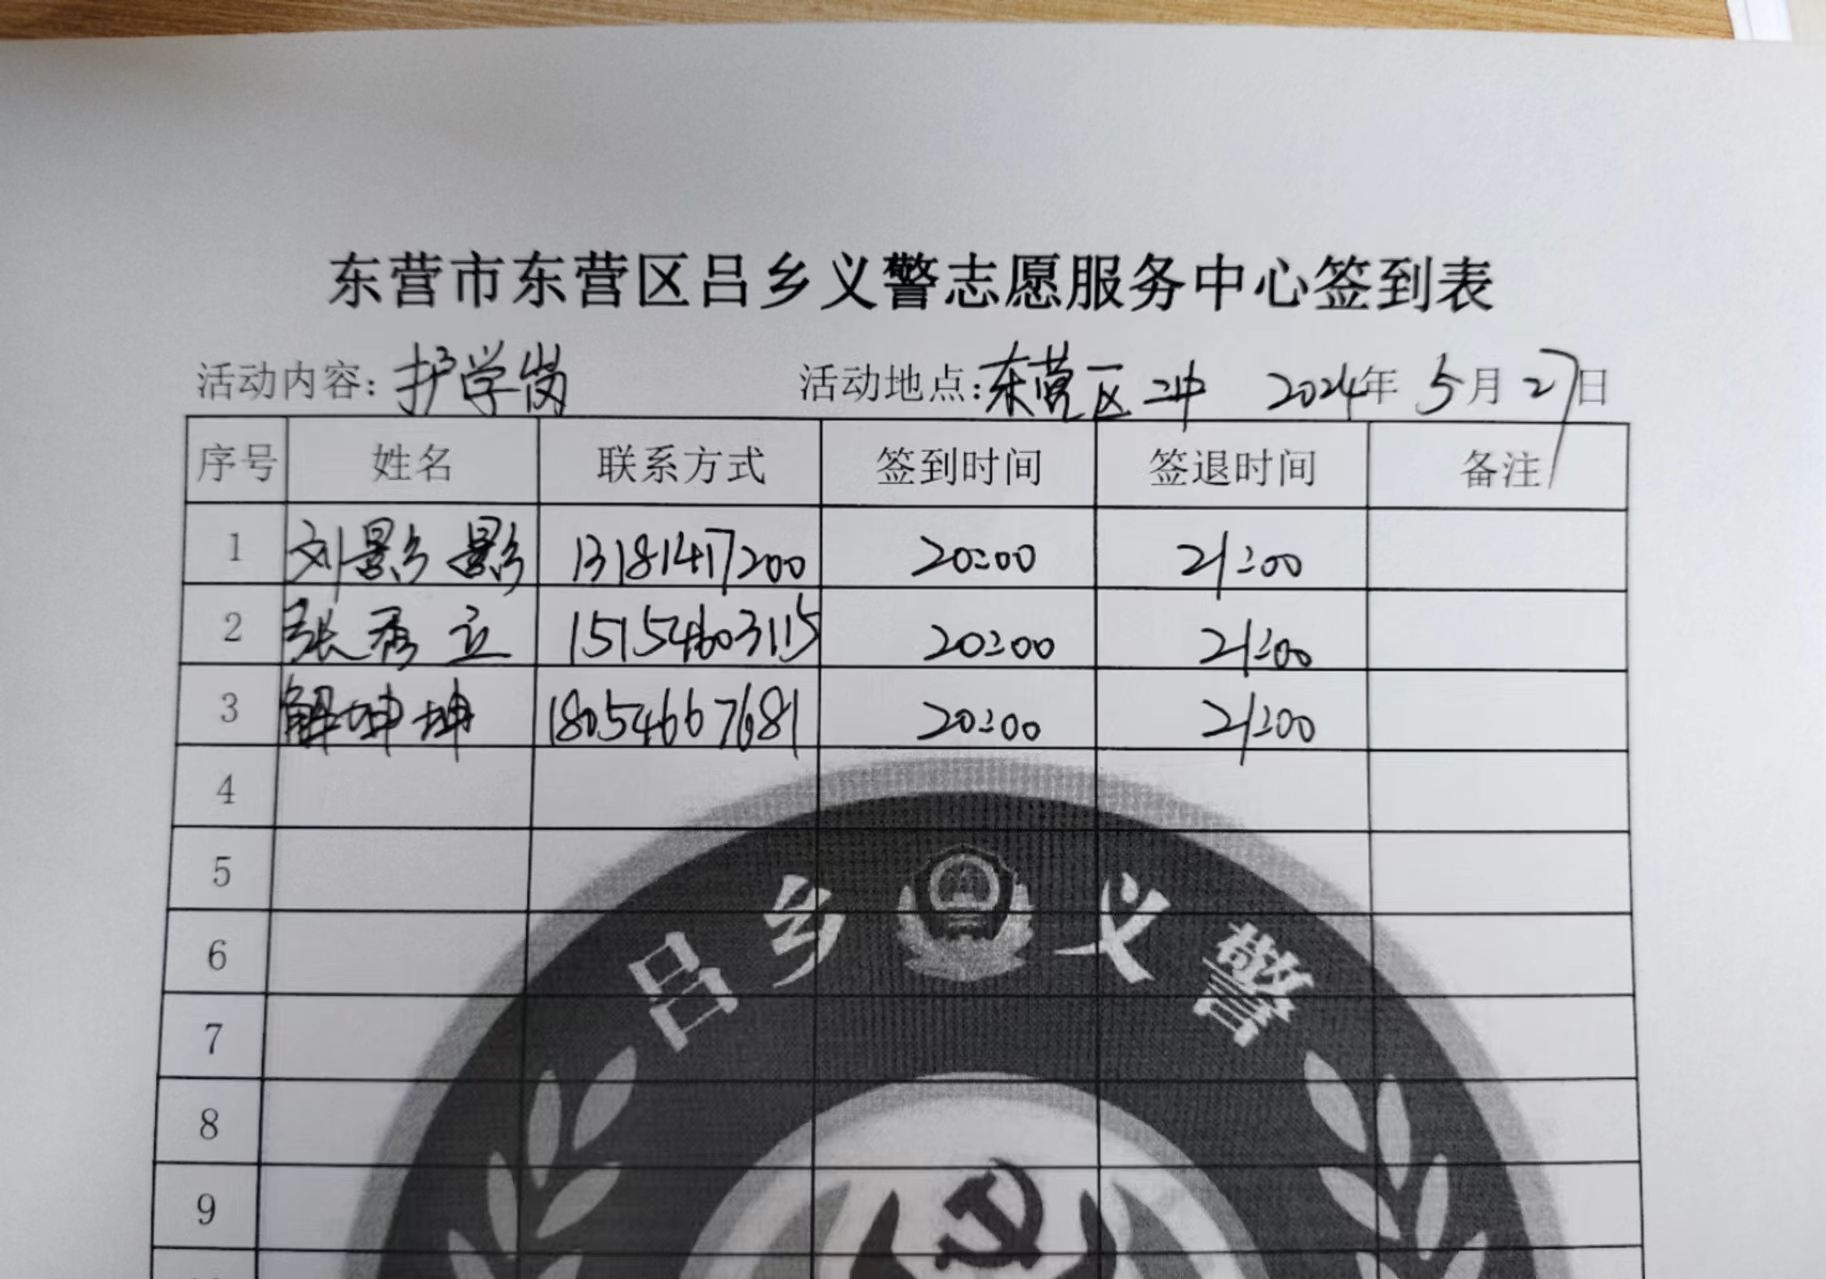 东营市东营区吕乡义警志愿服务中心签到表
活动内容：护学岗 活动地点：东营区二中 2024年 5月27日
序号 姓名 联系方式 签到时间 签退时间 备注
1 刘影影 13181417200 20:00 21:00
2 张秀立 15154603115 20:00 21:00
3 解坤坤 18054667681 20:00 21:00
4
5
6
7
8
9
吕乡义警